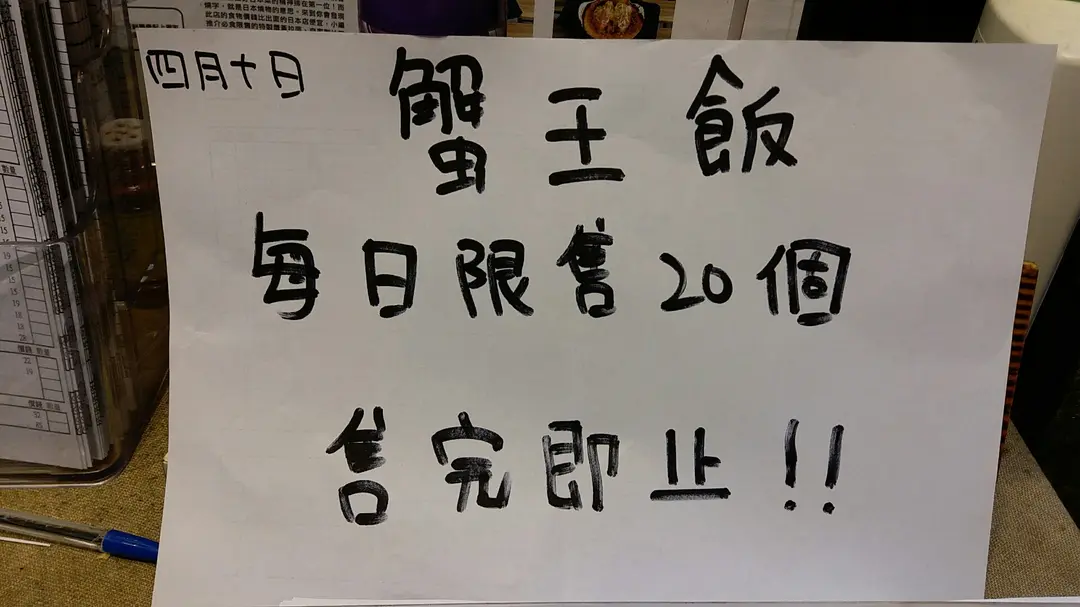 四月十日
蟹王飯
每日限售20個
售完即止!!